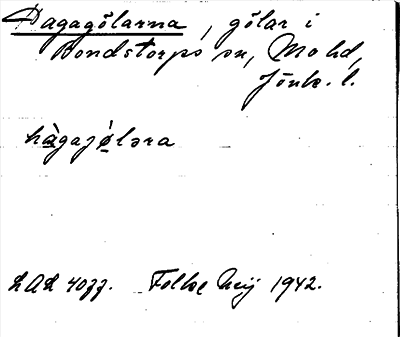 Dagagölarna, gölar i
Bondstorps sn, Mo hd,
Jönk. l.
hàgajǿləra
LAL 4077. Folke Meij 1942.